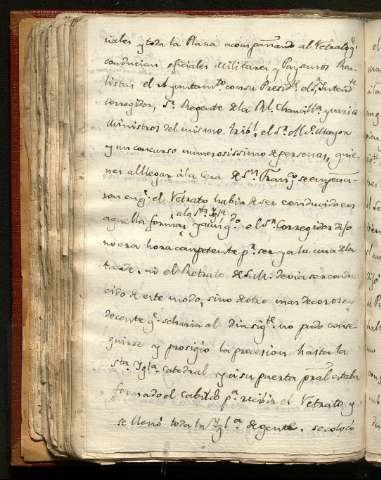 ciales y toda la Plaza acompañando al Retrato q.
conducian oficiales Militares y Paysanos Rea-
listas el Ayuntam.to con su Presid.te el S.r Intend.te
Corregidor, S.r Regente de la R.l Chancill.a y varios
Ministros del mismo Trib.l el S.r M.s Mayor
y un concurso numerosissimo de personas, quie-
nes al llegar à la Cera de S.n Fran.co se empeña-
ron en q.e el Retrato habia de ser conducido en
aquella forma a la S.ta Igl.a y aunq. dho el S.or Corregidor q.e
no era hora competente p.r ser ya la una de la
tarde, ni el Retrato de S. M. devia ser condu-
cido de este modo, sino de otro mas decoroso y
decente q.e se haria al dia sig.te no pudo conse-
guirse y prosigio la procesion hasta la
S.ta Ygl.a Catedral y a su puerta pral estaba
formado el Cabildo p.a recivir el Retrato y
se llenó toda la Ygl.a de gente, se colocó